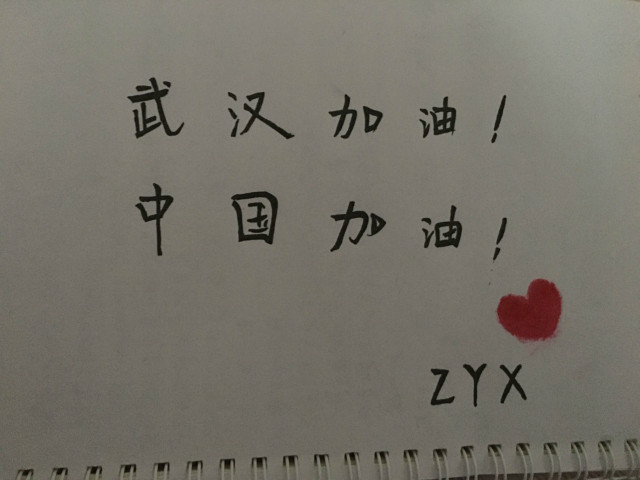 武汉加油!
中国加油!
ZYX